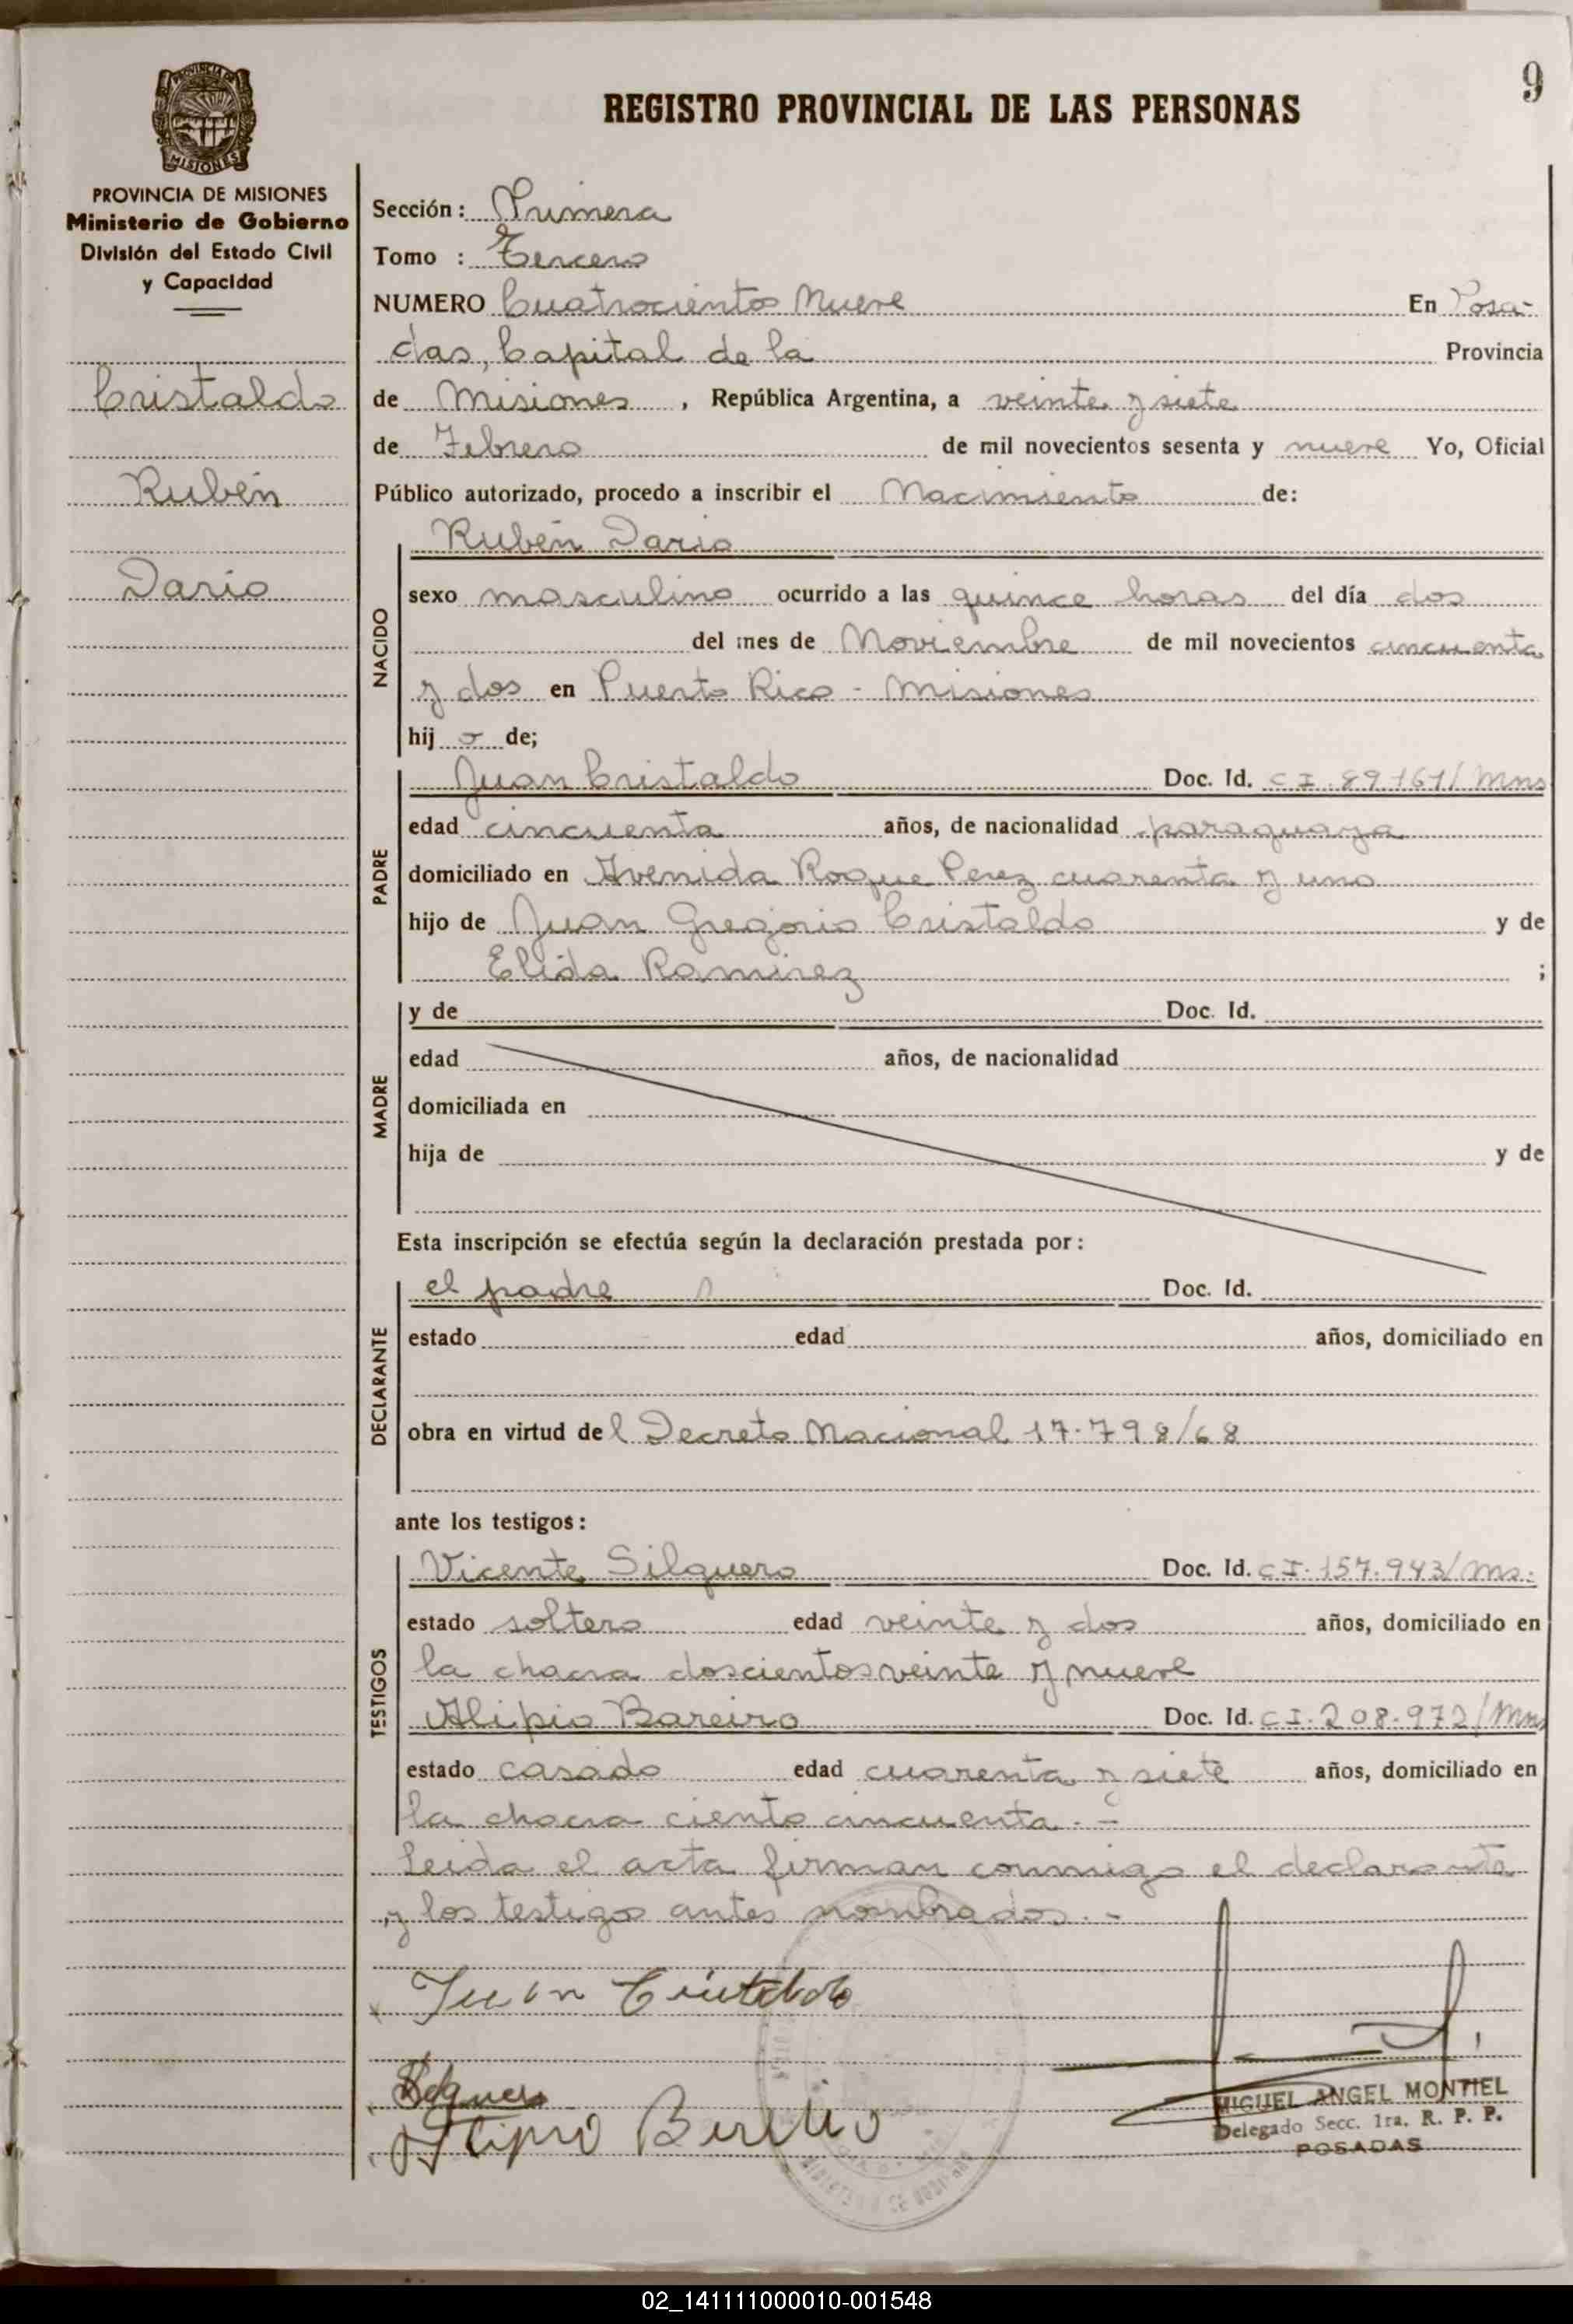 9
REGISTRO PROVINCIAL DE LAS PERSONAS
PROVINCIA DE MISIONES
MISIONES
PROVINCIA DE MISIONES
Ministerio de Gobierno
División del Estado Civil
y Capacidad
Cristaldo
Rubén
Dario
Sección: Primera
Tomo : Tercero
NUMERO Cuatrocientos Nueve En Posa-
das, Capital de la Provincia
de Misiones , República Argentina, a veinte y siete
de Febrero de mil novecientos sesenta y nueve Yo, Oficial
Público autorizado, procedo a inscribir el Nacimiento de:
NACIDO
Rubén Dario
sexo masculino ocurrido a las quince horas del día dos
del mes de Noviembre de mil novecientos cincuenta
y dos en Puerto Rico - Misiones
hij o de;
PADRE
Juan Cristaldo Doc. Id. CI. 89161/Mns
edad cincuenta años, de nacionalidad paraguaya
domiciliado en Avenida Roque Perez cuarenta y uno
hijo de Juan Gregorio Cristaldo y de
Elida Ramirez ;
MADRE
y de Doc. Id.
edad años, de nacionalidad
domiciliada en
hija de y de
Esta inscripción se efectúa según la declaración prestada por:
DECLARANTE
el padre Doc. Id.
estado edad años, domiciliado en
obra en virtud del Decreto Nacional 17.798/68
ante los testigos:
TESTIGOS
Vicente Silguero Doc. Id. CI. 157.943/Ms.
estado soltero edad veinte y dos años, domiciliado en
la chacra doscientos veinte y nueve
Alipio Bareiro Doc. Id. CI. 208.972/Mns
estado casado edad cuarenta y siete años, domiciliado en
la chacra ciento cincuenta.-
Leida el acta firman conmigo el declarante
y los testigos antes nombrados.-
Juan Cristaldo
Silguero
Alipio Bareiro
MIGUEL ANGEL MONTIEL
Delegado Secc. 1ra. R. P. P.
POSADAS
02_141111000010-001548